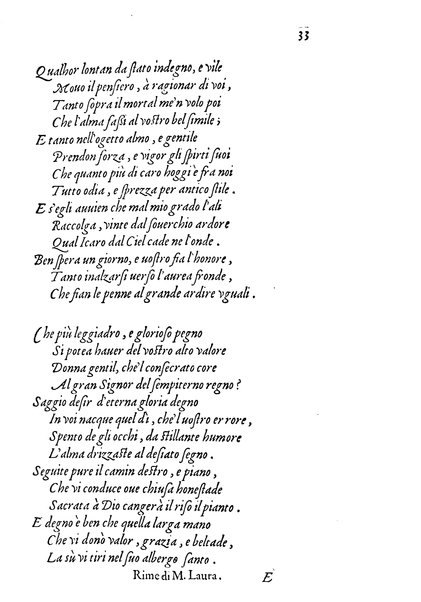 33
Qualhor lontan da ſtato indegno, e vile
Mouo il penſiero, à ragionar di voi,
Tanto ſopra il mortal me'n volo poi
Che l'alma faſſi al voſtro bel ſimile;
E tanto nell'ogetto almo, e gentile
Prendon forza, e vigor gli ſpirti ſuoi
Che quanto più di caro hoggi è fra noi
Tutto odia, e ſprezza per antico ſtile.
E s'egli auuien che mal mio grado l'ali
Raccolga, vinte dal ſouerchio ardore
Qual Icaro dal Ciel cade ne l'onde.
Ben ſpera un giorno, e uoſtro fia l'honore,
Tanto inalzarſi uerſo l'aurea fronde,
Che ſian le penne al grande ardire vguali.
Che più leggiadro, e glorioſo pegno
Si potea hauer del voſtro alto valore
Donna gentil, che'l conſecrato core
Al gran Signor del ſempiterno regno?
Saggio deſir d'eterna gloria degno
In voi nacque quel dì, che'l uoſtro errore,
Spento de gli occhi, da ſtillante humore
L'alma drizzaſte al deſiato ſegno.
Seguite pure il camin deſtro, e piano,
Che vi conduce oue chiuſa honeſtade
Sacrata à Dio cangerà il riſo il pianto.
E degno è ben che quella larga mano
Che vi donò valor, grazia, e beltade,
La sù vi tiri nel ſuo albergo ſanto.
Rime di M. Laura. E